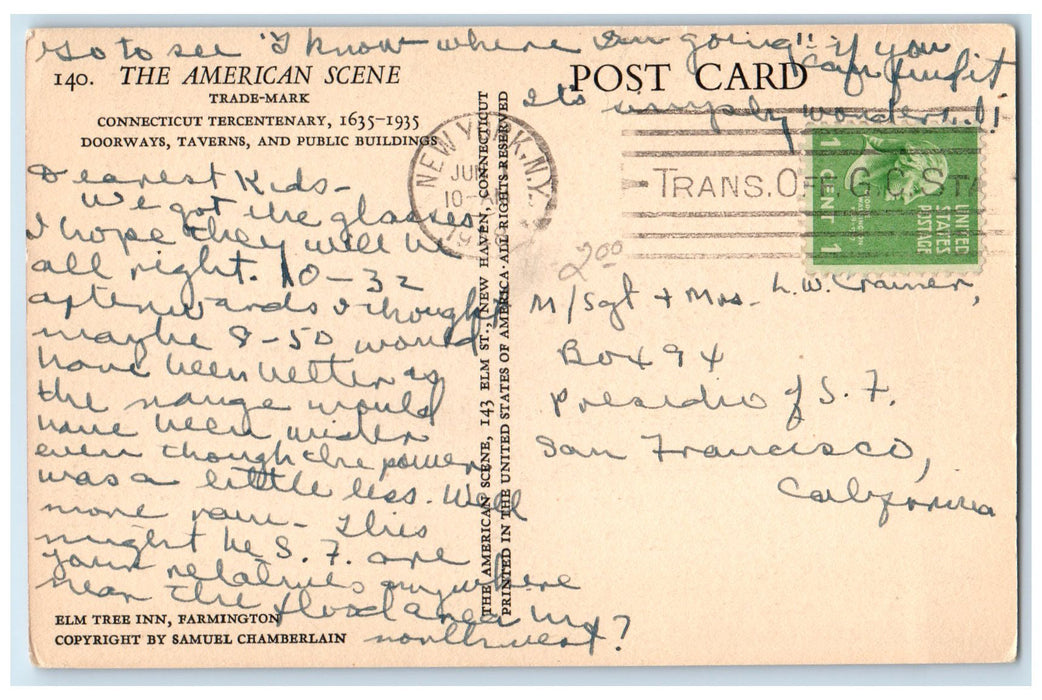 Go to see "I know where I'm going" if you
can find it
It's simply wonderful!
140. THE AMERICAN SCENE
TRADE-MARK
CONNECTICUT TERCENTENARY, 1635-1935
DOORWAYS, TAVERNS, AND PUBLIC BUILDINGS
POST CARD
Dearest Kids-
We got the glasses.
I hope they will be
all right. 10-32
afterwards I thought
maybe 8-50 would
have been better as
the range would
have been wider
even though the power
was a little less. Well
more rain - This
might be S. F. are
your relatives anywhere
near the flood area in
northwest?
ELM TREE INN, FARMINGTON
COPYRIGHT BY SAMUEL CHAMBERLAIN
THE AMERICAN SCENE, 143 ELM ST., NEW HAVEN, CONNECTICUT
PRINTED IN THE UNITED STATES OF AMERICA · ALL RIGHTS RESERVED
NEW YORK, N.Y.
JUN
10-
19
TRANS. OFF G.C. STA
1 CENT 1
UNITED
STATES
POSTAGE
2.00
M/Sgt + Mrs. L.W. Cramer,
Box 94
Presidio of S. F.
San Francisco,
California